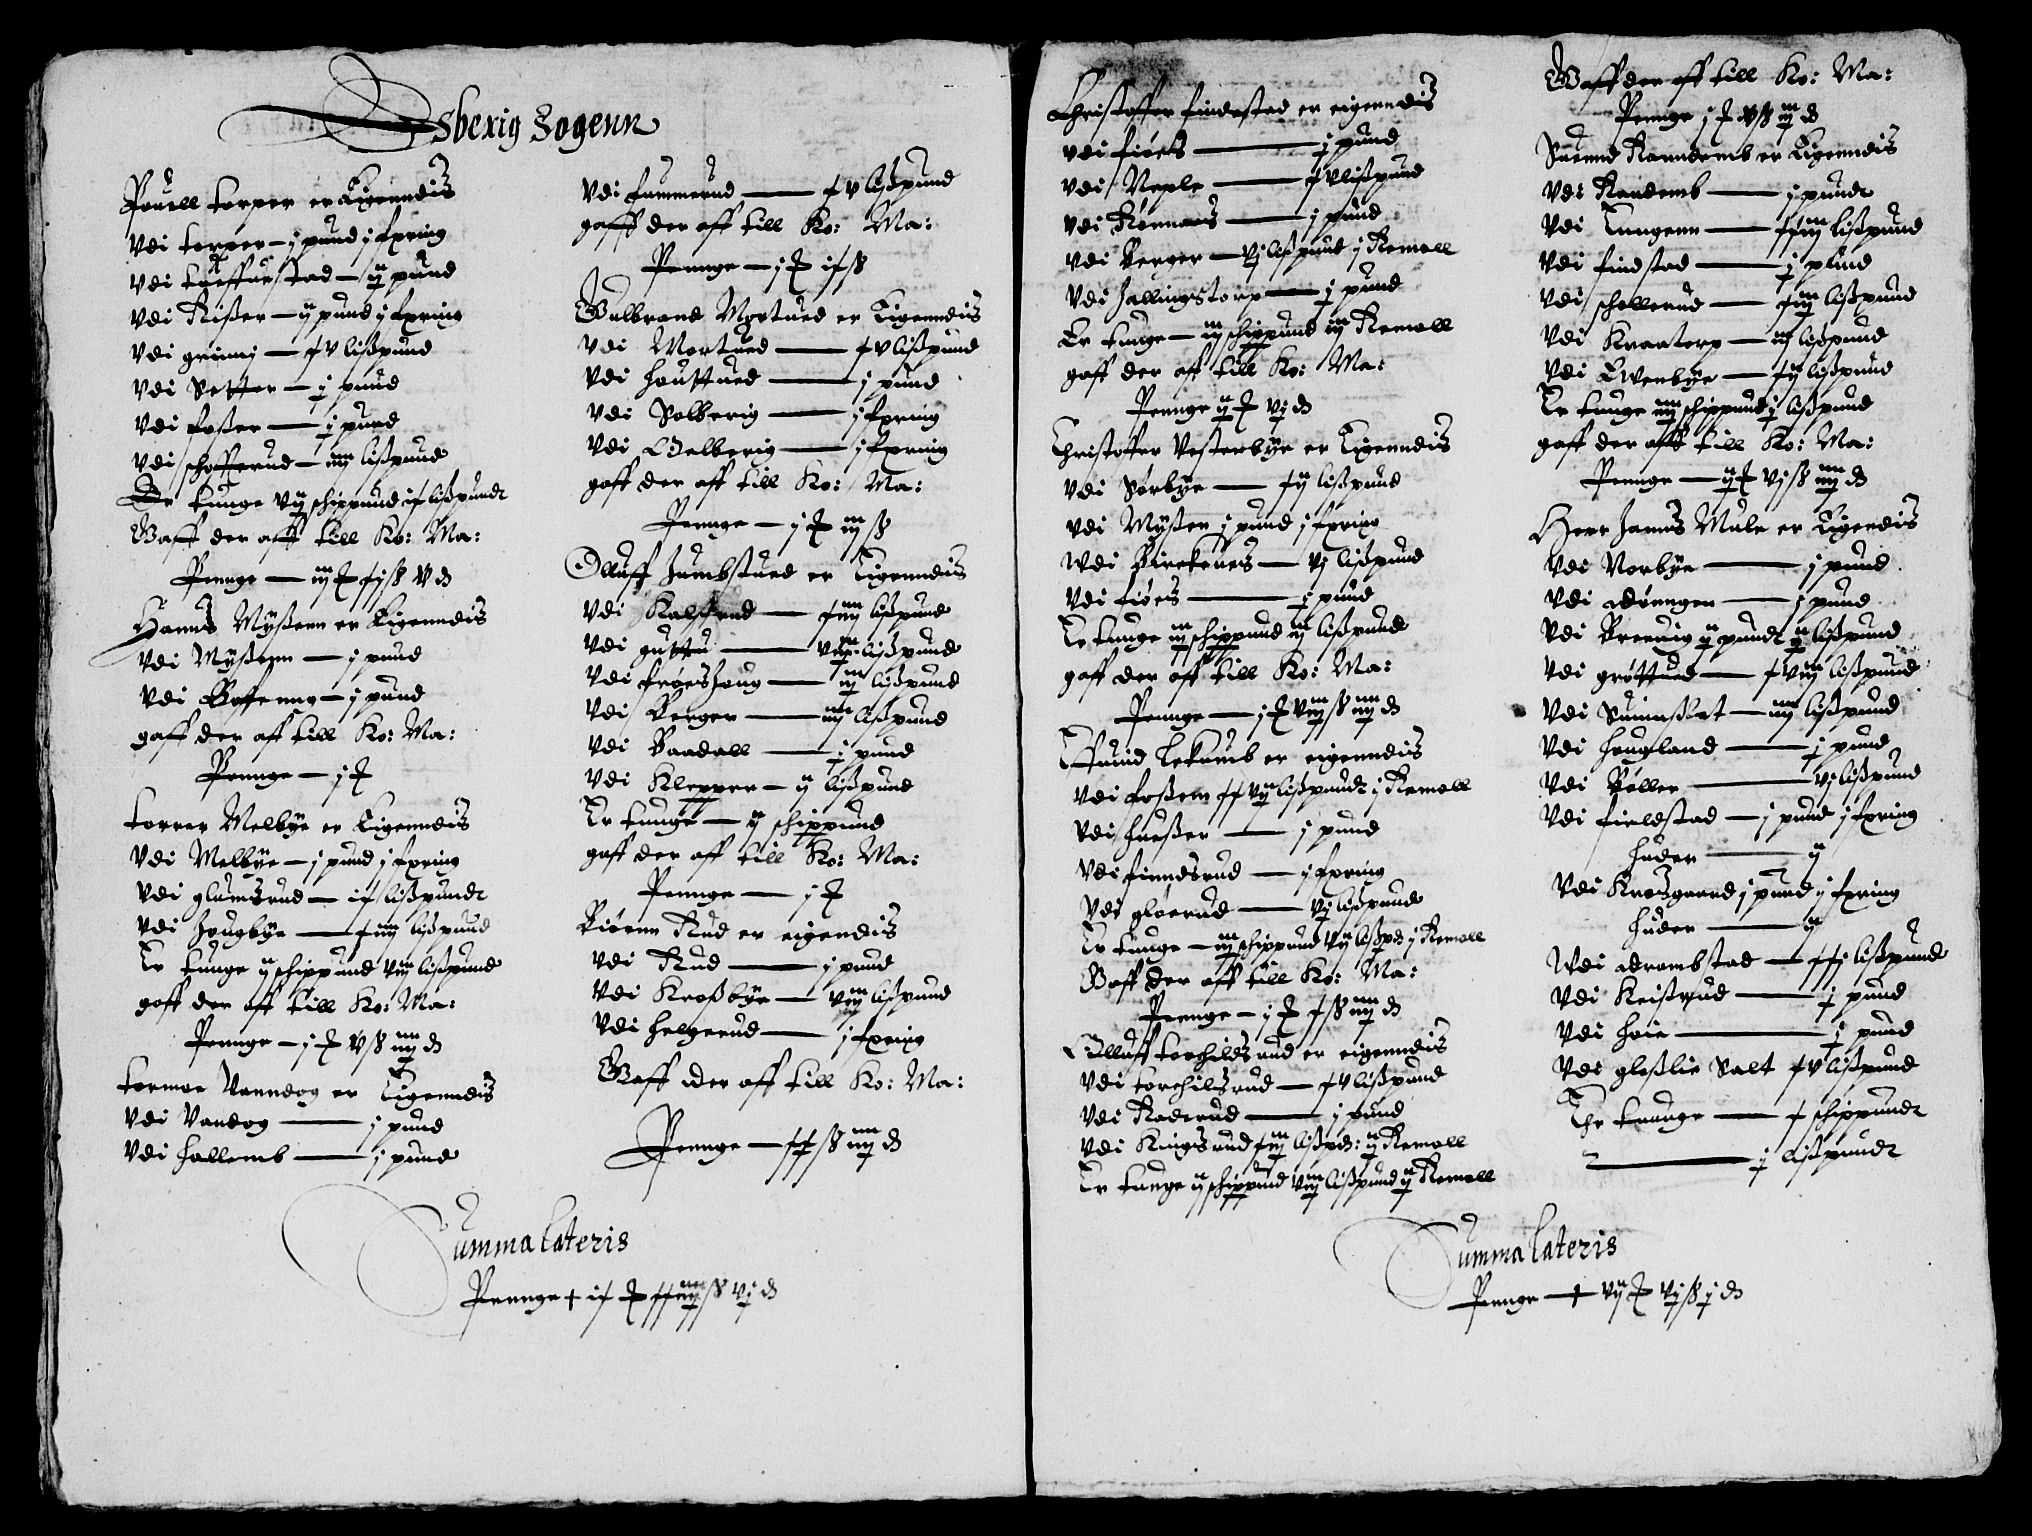 Esberig Sogenn
Pouell torper er Eigenndis
Vdi torper — j pund j fxring
Vdi tueffuestad — ij pund
Vdi Rister — ij pund j fxring
Vdi grimj — x v lißpund
Vdi Setter — j pund
Vdi foßer — j pund
Vdi schofferud — iiij lißpund
Er tunge vij schippund ix lißpundt
Gaff der aff till Ko: Ma:
Pennge — iij ß v d
Hanns Myßenn er Eigenndis
Vdi Myßenn — j pund
Vdi — j pund
gaff der aff till Ko: Ma:
Pennge — j
torrer Melbye er Eigenndis
Vdi Melbye — j pund j fxring
Vdi glumsrud — ix lißpundt
Vdi Hougbye — xiiij lißpund
Er tunge ij schippund viij lißpund
gaff der aff till Ko: Ma:
Pennge — j v ß iiij d
tormoe Vanndog er Eigenndis
Vdi Vandog — j pund
Vdi Hallemb — j pund
Vdi fummerud — x v lißpund
gaff der aff till Ko: Ma:
Pennge — j ix ß
Gulbrand Mortued er Eigenndis
Vdi Mortued — x v lißpund
Vdi Houttued — j pund
Vdi Solberig — j fxring
Vdi Gulberig — j fxring
gaff der aff till Ko: Ma:
Pennge — j iiij ß
Olluff Humbstued er Eigenndis
Vdi Kalsrud — xiiij lißpund
Vdi guttu — lißpund
Vdi froeshoug — iiij lißpund
Vdi Berger — iiij lißpund
Vdi Baadall — j pund
Vdi Klepper — ij lißpund
Er tunge — ij schippund
gaff der aff till Ko: Ma:
Pennge — j
Biørnn Rud er eigendis
Vdi Rud — j pund
Vdi Kroßbye — viij lißpund
Vdi Helgerud — j fxring
Gaff der aff till Ko: Ma:
Pennge — xx ß iiij d
Summa lateris
Pennge — ix xxiiij ß vj d
Christoffer findestad er eigenndis
Vdi fiøes — j pund
Vdi Neple — x v lißpund
Vdi Rønnaes — j pund
Vdi Berger — vj lißpund j Remoll
Vdi Hallingstorp — j pund
Er tunge — iij schippund iij Remoll
gaff der aff till Ko: Ma:
Pennge ij vj d
Christoffer Vesterbye er Eigenndis
Vdi Sørbye — xij lißpund
Vdi Myßen j pund j fxring
Wdi Birkenes — vj lißpund
Vdi fiøes — j pund
Er tunge iij schippund iij lißpund
gaff der aff till Ko: Ma:
Pennge — j viij ß iiij d
Effuind Lekumb er eigenndis
Vdi foßem xx vij lißpundt j Remoll
Vdi fueßer — j pund
Vdi finndsrud — j fxring
Vdi gløerud — vj lißpund
Er tunge — iij schippund vij lißpd j Remoll
Gaff der aff till Ko: Ma:
Pennge — j x ß iiij d
Olluff torchildsrud er eigenndis
Vdi torchilsrud — x v lißpund
Vdi Roderud — j pund
Vdi Kingsrud xiij lißpd: ij Remoll
Er tunge ij schippund viij lißpund ij Remoll
Gaff der aff till Ko: Ma:
Pennge j v ß iij d
Suennd Ramdemb er Eigenndis
Vdi Ramdemb — j pundt
Vdi Tungenn — xxiij lißpund
Vdi findstad — j pund
Vdi schollerud — xiij lißpund
Vdi Kraatorp — iij lißpund
Vdi Euenbye — xij lißpund
Er tunge iiij schippund j lißpund
gaff der aff till Ko: Ma:
Pennge — ij vj ß iiij d
Herr Hanns Mule er Eigendis
Vdi Norbye — j pund
Vdi — j pund
Vdi Breeuig ij pundt ij lißpund
Vdi grøttued — x viij lißpund
Vdi — iiij lißpund
Vdi Hougland — j pund
Vdi Bøller — vj lißpund
Vdi fieldstad — j pund j fxring
Huder — ij
Vdi Krosgaard j pund j fxring
Huder — ij
Wdi dramstad — xxj lißpund
Vdi Keißerud — j pund
Vdi Hoie — j pund
Vdi gloslie Salt x v lißpund
Er tunnge — x schippundt
— j lißpundt
Summa lateris
Pennge — vij vj ß j d